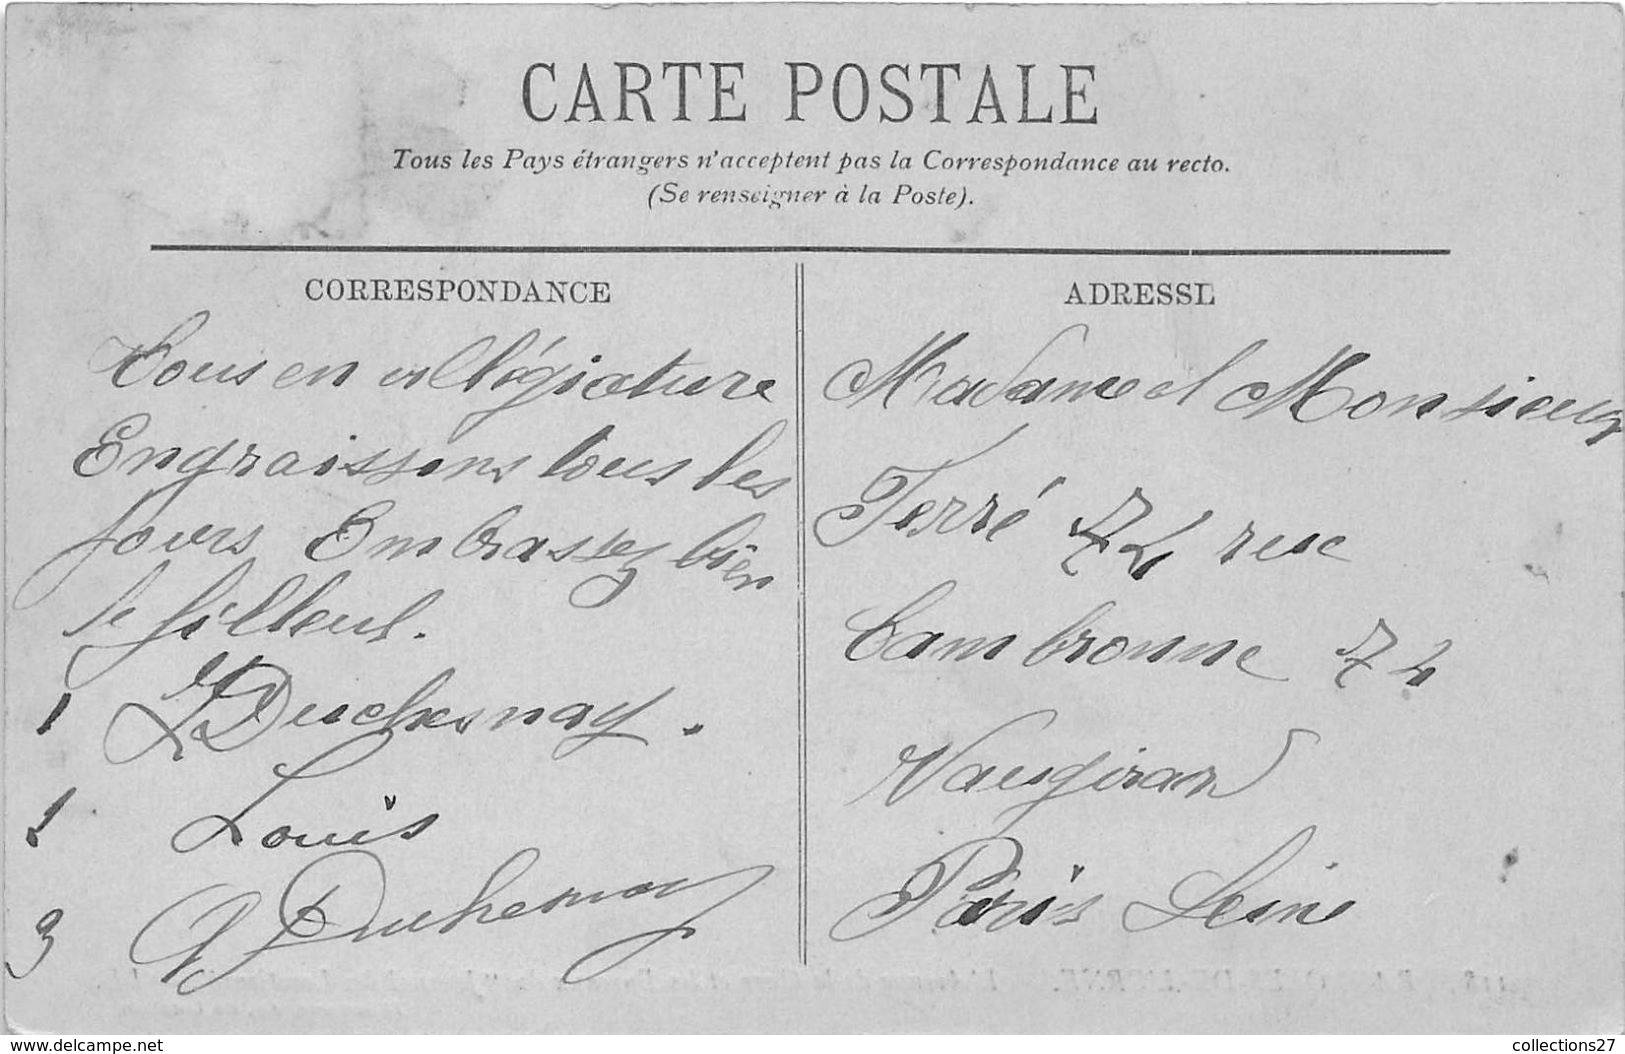 CARTE POSTALE
Tous les Pays étrangers n'acceptent pas la Correspondance au recto.
(Se renseigner à la Poste).
CORRESPONDANCE
Tous en villégiature
Engraissons tous les
jours Embrassez bien
le filleul.
1 Duchesnay.
1 Louis
3 Duchesnay
ADRESSE
Madame et Monsieur
Terré 74 rue
Cambronne 74
Vaugirard
Paris Seine
www.delcampe.net
collections27